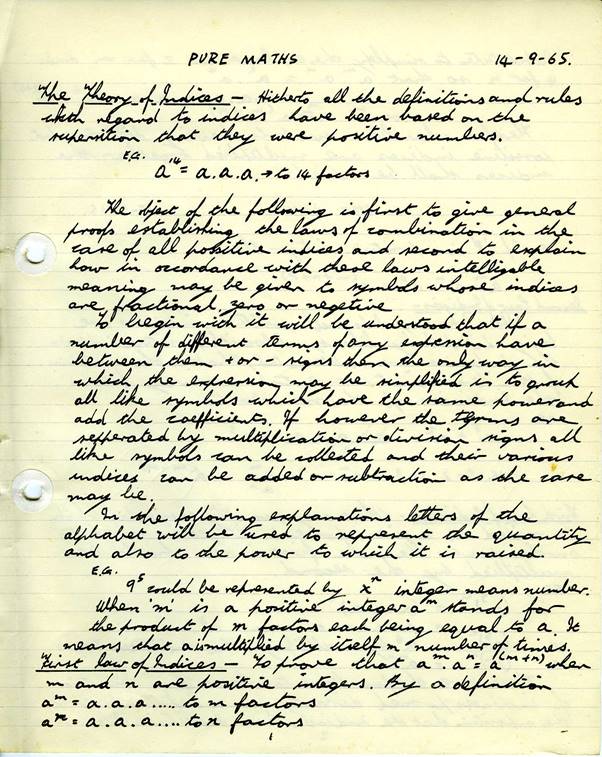 PURE MATHS 14-9-65.
The Theory of Indices - Hitherto all the definitions and rules
with regard to indices have been based on the
supersition that they were positive numbers.
E.G.
a¹⁴ = a.a.a. → to 14 factors
The object of the following is first to give general
proofs establishing the laws of combination in the
case of all positive indices and second to explain
how in accordance with these laws intelligable
meaning may be given to symbols whose indices
are fractional, zero or negetive
To begin with it will be understood that if a
number of different terms of any expression have
between them + or - signs then the only way in
which the expression may be simplified is to group
all like symbols which have the same power and
add the coefficients. If however the terms are
sepperated by multiplication or division signs all
like symbols can be collected and their various
indices can be added or subtraction as the case
may be.
In the following explanations letters of the
alphabet will be used to represent the quantity
and also to the power to which it is raised.
E.G.
9⁵ could be represented by xⁿ integer means number.
When 'm' is a positive integer aᵐ stands for
the product of m factors each being equal to a. It
means that a is multiplied by itself m number of times.
First law of Indices - To prove that aᵐ.aⁿ = a⁽ᵐ⁺ⁿ⁾ when
m and n are positive integers. By a definition
aᵐ = a.a.a ..... to m factors
aⁿ = a.a.a .... to n factors